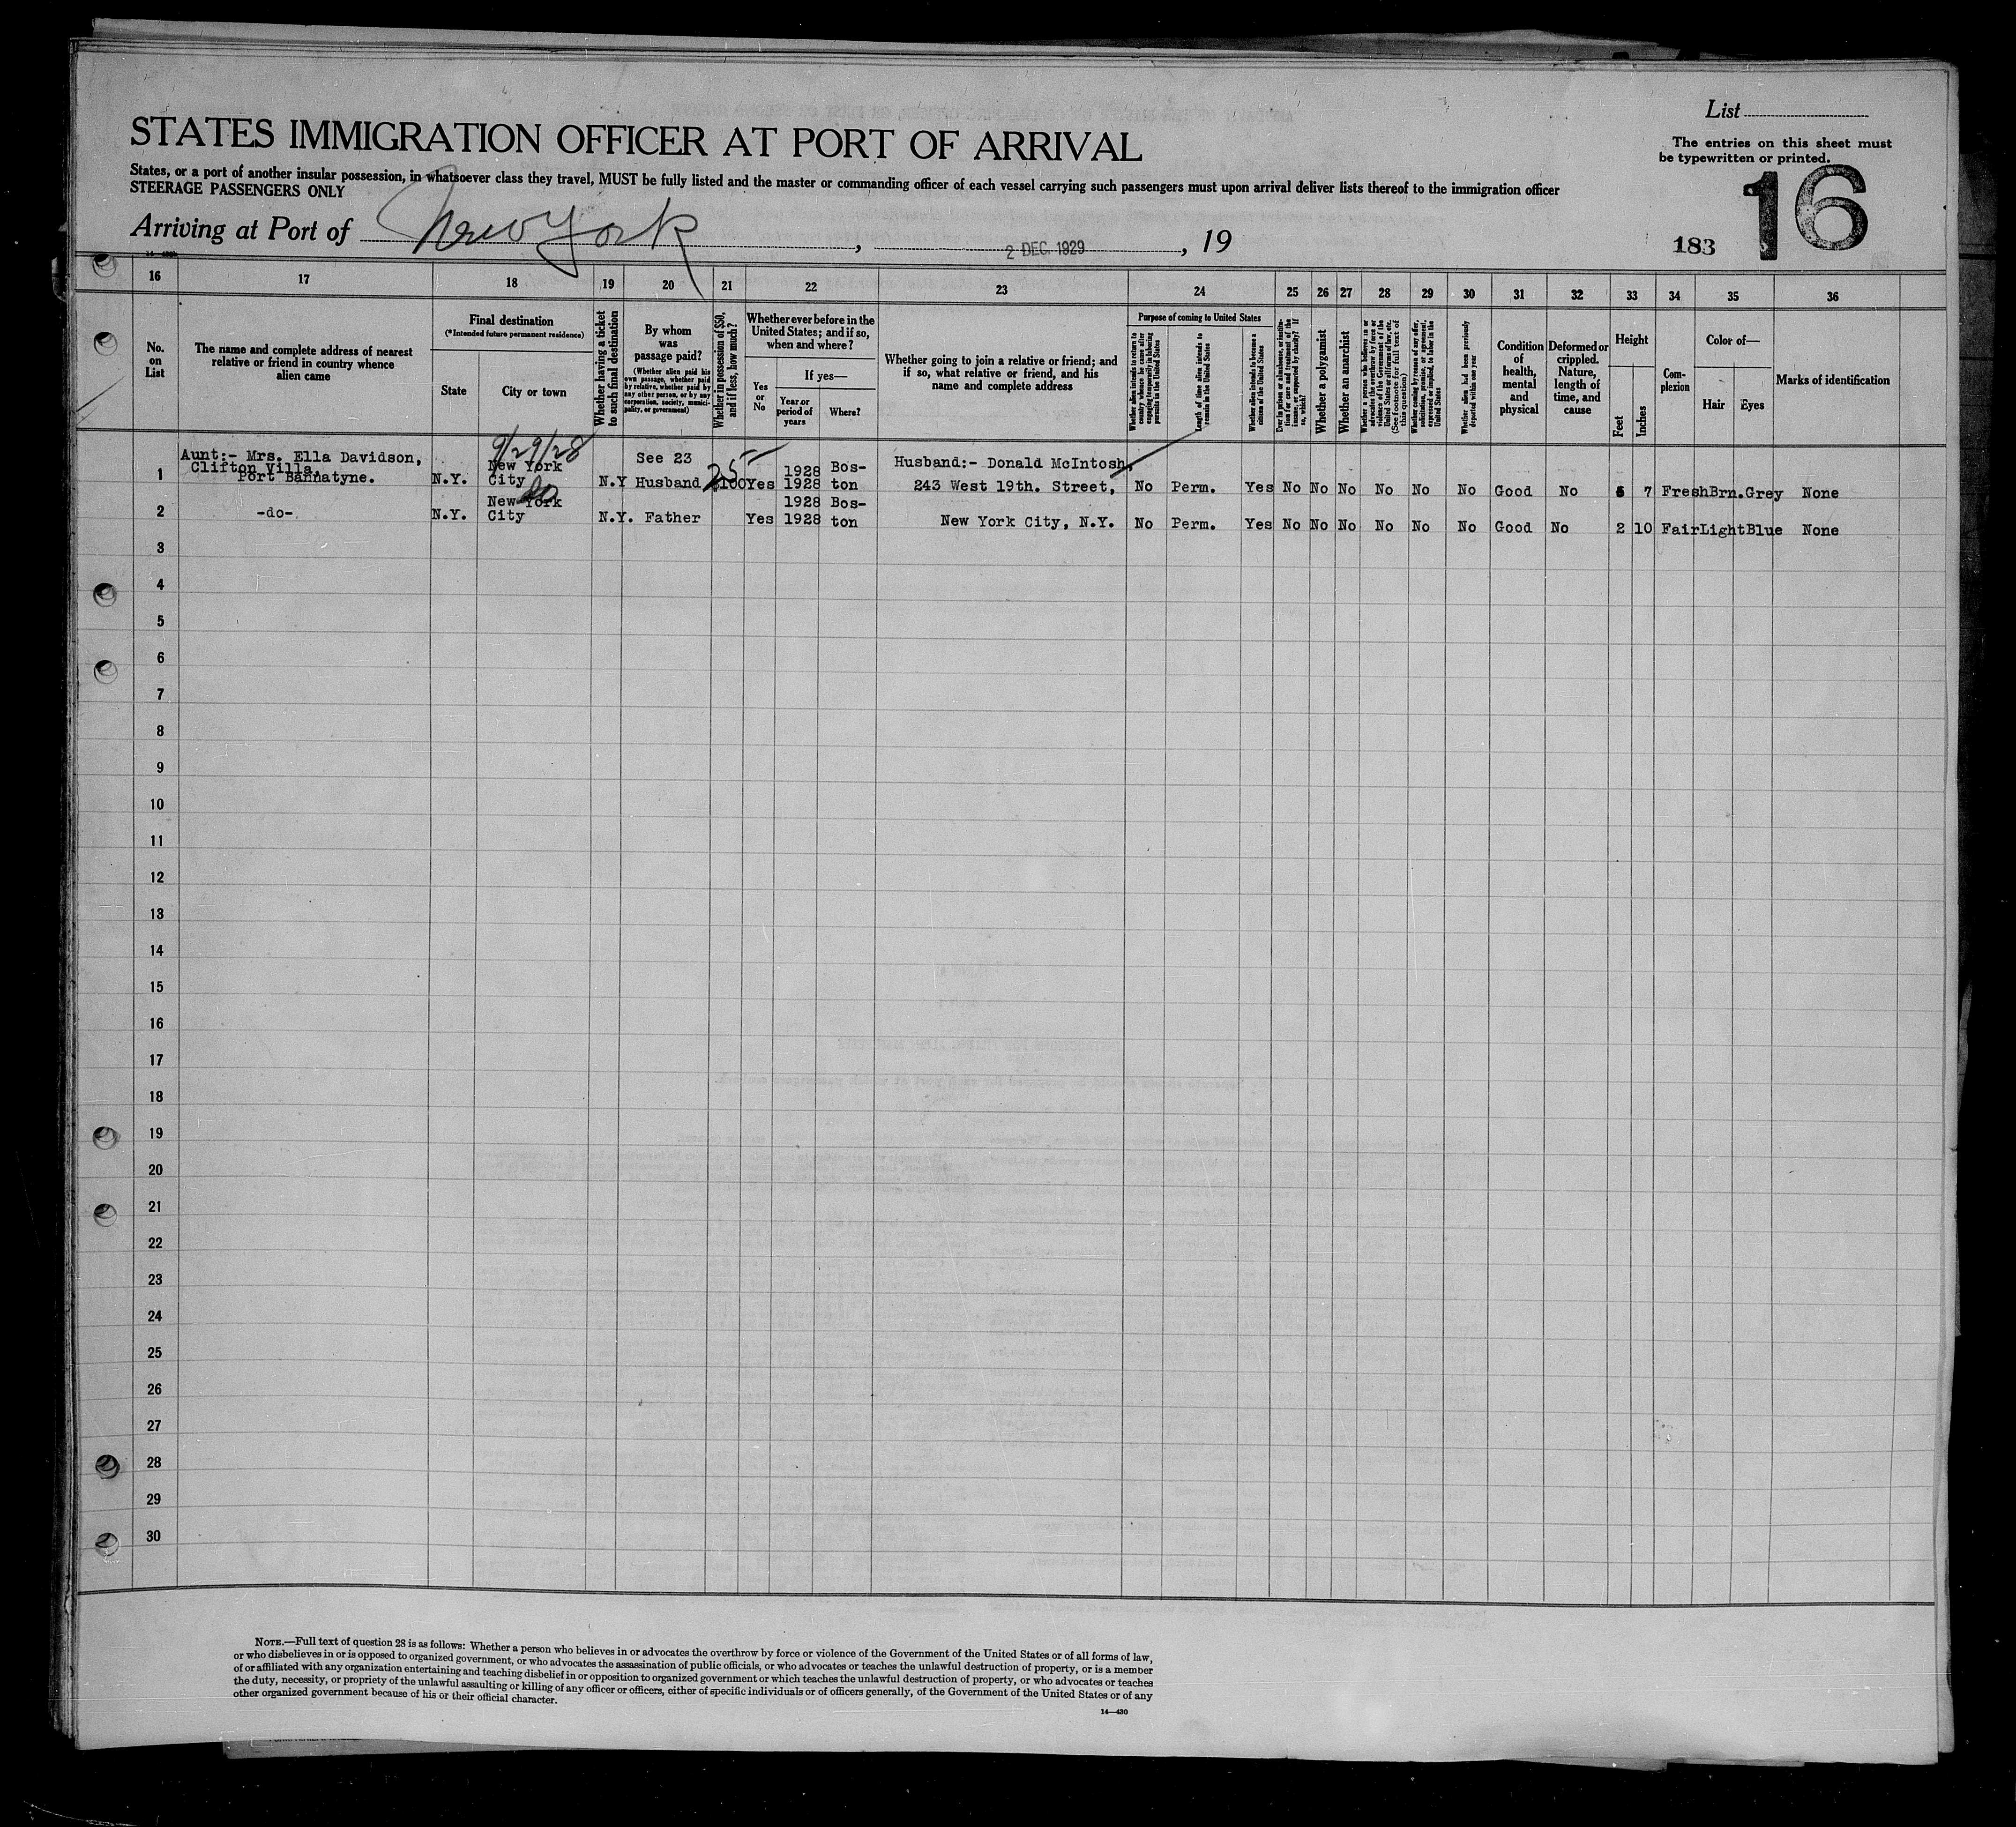 List
The entries on this sheet must
be typewritten or printed.
STATES IMMIGRATION OFFICER AT PORT OF ARRIVAL
States, or a port of another insular possession, in whatsoever class they travel, MUST be fully listed and the master or commanding officer of each vessel carrying such passengers must upon arrival deliver lists thereof to the immigration officer
STEERAGE PASSENGERS ONLY
16
Arriving at Port of New York, 2 DEC 1929, 19
183
16 17 18 19 20 21 22 23 24 25 26 27 28 29 30 31 32 33 34 35 36
No.
on
List
The name and complete address of nearest
relative or friend in country whence
alien came
Final destination
(*Intended future permanent residence)
State
City or town
Whether having a ticket
to such final destination
By whom
was
passage paid?
(Whether alien paid his
own passage, whether paid
by relative, whether paid by
any other person, or by any
corporation, society, munici-
pality, or government)
Whether in possession of $50,
and if less, how much?
Whether ever before in the
United States; and if so,
when and where?
Yes
or
No
If yes—
Year or
period of
years
Where?
Whether going to join a relative or friend; and
if so, what relative or friend, and his
name and complete address
Purpose of coming to United States
Whether alien intends to return to
country whence he came after
engaging temporarily in laboring
pursuits in the United States
Length of time alien intends to
remain in the United States
Whether alien intends to become a
citizen of the United States
Ever in prison or almshouse, or institu-
tion for care and treatment of the
insane, or supported by charity? If
so, which?
Whether a polygamist
Whether an anarchist
Whether a person who believes in or
advocates the overthrow by force or
violence of the Government of the
United States or all forms of law, etc.
(See footnote for full text of
this question)
Whether coming by reason of any offer,
solicitation, promise, or agreement,
expressed or implied, to labor in the
United States
Whether alien had been previously
deported within one year
Condition
of
health,
mental
and
physical
Deformed or
crippled.
Nature,
length of
time, and
cause
Height
Feet
Inches
Com-
plexion
Color of—
Hair
Eyes
Marks of identification
9/29/28
Aunt:- Mrs. Ella Davidson,
Clifton Villa,
Port Bannatyne.
1 N.Y. New York
City N.Y See 23
Husband 25 $100 Yes 1928
1928 Bos-
ton Husband:- Donald McIntosh,
243 West 19th. Street, No Perm. Yes No No No No No No Good No 5 7 Fresh Brn. Grey None
2 -do- N.Y. do New York
City N.Y. Father Yes 1928
1928 Bos-
ton New York City, N.Y. No Perm. Yes No No No No No No Good No 2 10 Fair Light Blue None
3
4
5
6
7
8
9
10
11
12
13
14
15
16
17
18
19
20
21
22
23
24
25
26
27
28
29
30
NOTE.—Full text of question 28 is as follows: Whether a person who believes in or advocates the overthrow by force or violence of the Government of the United States or of all forms of law,
or who disbelieves in or is opposed to organized government, or who advocates the assassination of public officials, or who advocates or teaches the unlawful destruction of property, or is a member
of or affiliated with any organization entertaining and teaching disbelief in or opposition to organized government or which teaches the unlawful destruction of property, or who advocates or teaches
the duty, necessity, or propriety of the unlawful assaulting or killing of any officer or officers, either of specific individuals or of officers generally, of the Government of the United States or of any
other organized government because of his or their official character.
14—430